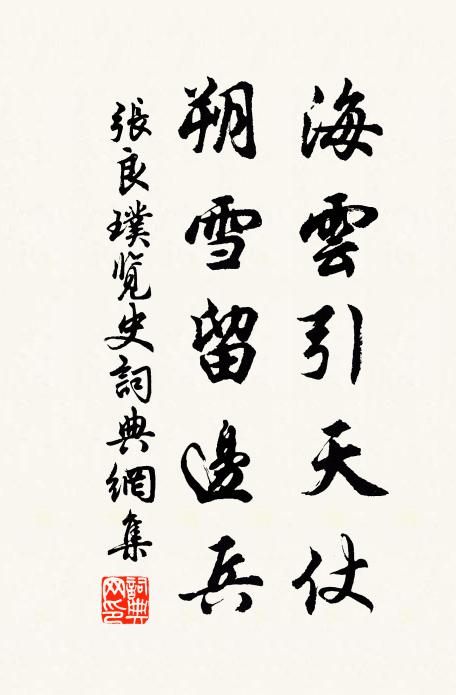 海雲引天仗
朔雪留邊兵
張良璞覽史詞典網集
詞典网印